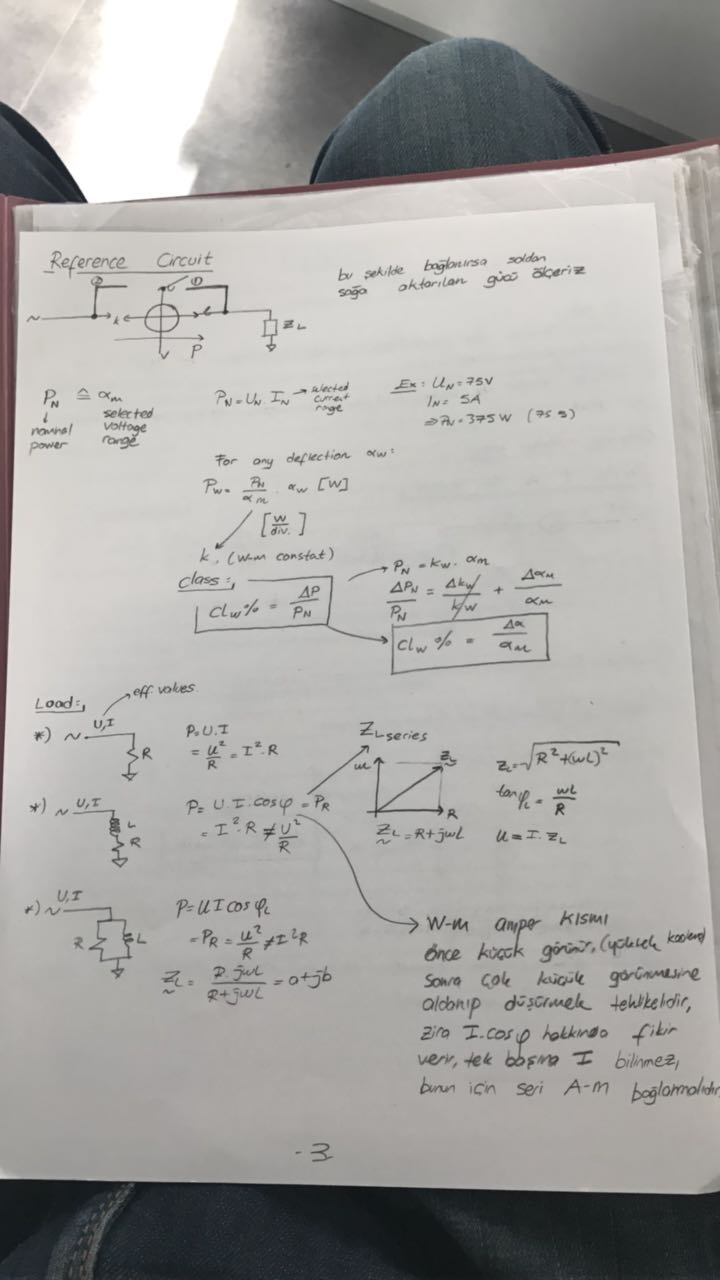 Reference Circuit
bu şekilde bağlanırsa soldan
sağa aktarılan gücü ölçeriz
② ①
~ k l
Z_L
V P
P_N ≙ α_m
nominal power
selected voltage range
P_N = U_N . I_N → selected current range
Ex: U_N = 75V
I_N = 5A
⇒ P_N = 375W (75 s)
For any deflection α_w:
P_w = P_N/α_m . α_w [W]
[W/div.]
k, (W-m constat)
Class:,
CL_w % = ΔP/P_N
P_N = k_w . α_m
ΔP_N/P_N = Δk_w/k_w + Δα_m/α_m
CL_w % = Δα/α_m
Load:, eff. values
*) ~ U,I R
P=U.I
= U²/R = I².R
Z_L series
wL Z_L R
Z_L = R+jwL
Z_L = √R²+(wL)²
tanφ_L = wL/R
U = I.Z_L
*) ~ U,I L R
P= U.I.cosφ = P_R
= I².R ≠ U²/R
*) ~ U,I R L
P=UI cosφ_L
= P_R = U²/R ≠ I²R
Z_L = R.jwL/R+jwL = a+jb
W-m amper kısmı
önce küçük görünür, (yüksek
sonra çok küçük görünmesine
aldanıp düşürmek tehlikelidir,
zira I.cosφ hakkında fikir
verir, tek başına I bilinmez,
bunun için seri A-m bağlanmalıdır.
-3